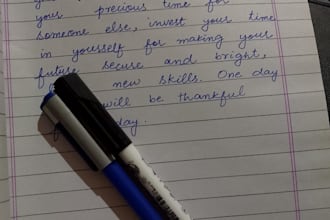 your precious time for
someone else, invest your time
in yourself for making your
future secuse and bright,
new skills. One day
will be thankful
day.